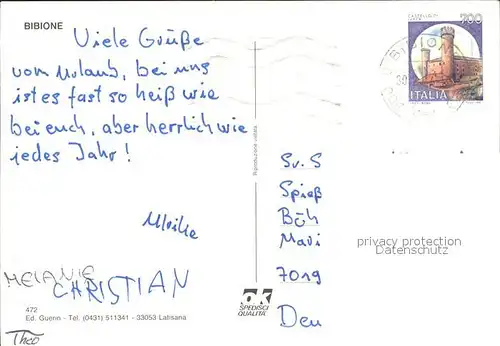 BIBIONE
Viele Grüße
vom Urlaub, bei uns
ist es fast so heiß wie
bei euch, aber herrlich wie
jedes Jahr!
Ulrike
MELANIE
CHRISTIAN
472
Ed. Guerin - Tel. (0431) 511341 - 33053 Latisana
Theo
Riproduzione vietata
700
ITALIA
Sv. S
Spieß
Böh
Mavi
7019
Deu
privacy protection
Datenschutz
OK
SPEDISCI
QUALITÀ